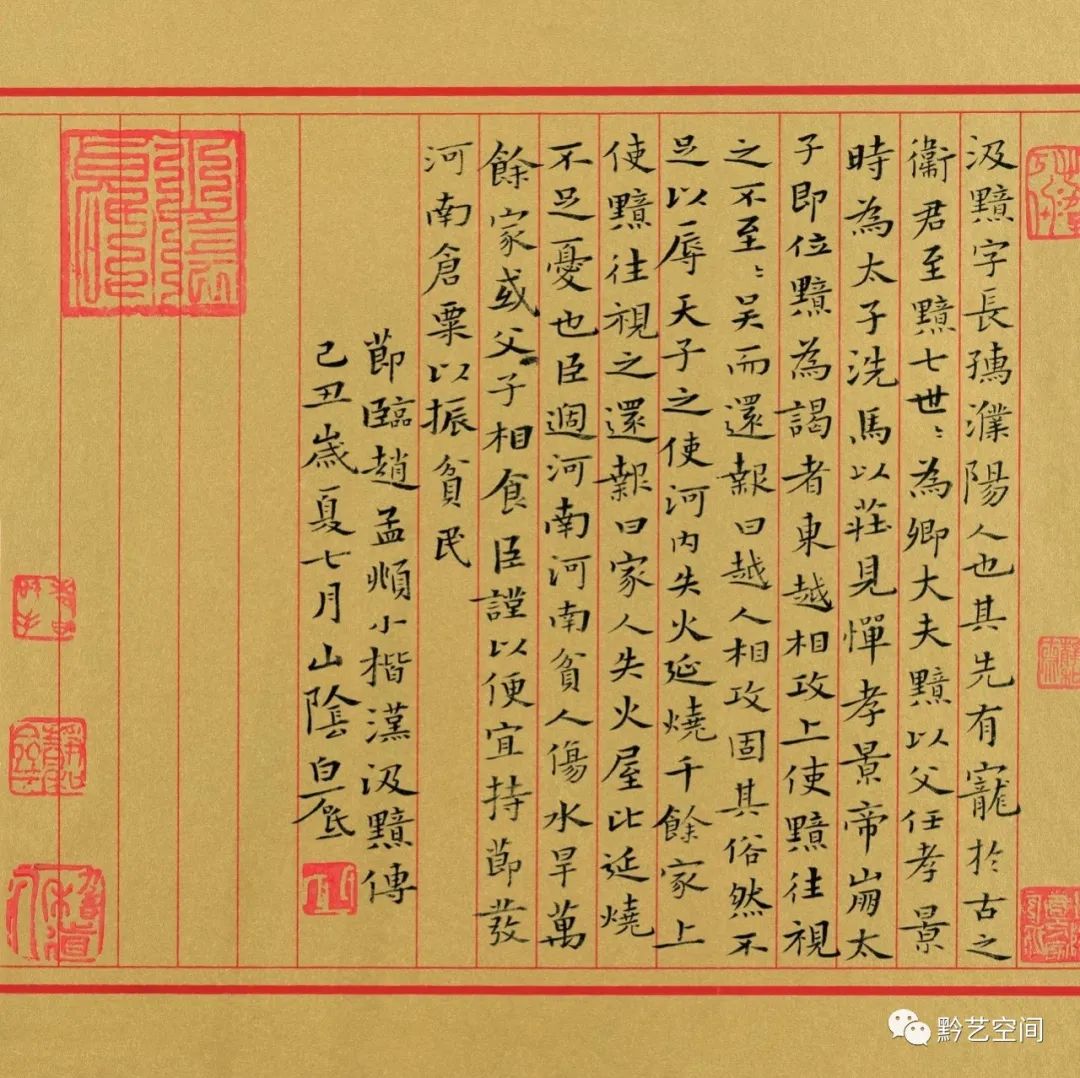 汲黯字長孺濮陽人也其先有寵於古之
衞君至黯七世〻為卿大夫黯以父任孝景
時為太子洗馬以莊見憚孝景帝崩太
子即位黯為謁者東越相攻上使黯往視
之不至〻吳而還報曰越人相攻固其俗然不
足以辱天子之使河內失火延燒千餘家上
使黯往視之還報曰家人失火屋比延燒
不足憂也臣過河南河南貧人傷水旱萬
餘家或父子相食臣謹以便宜持節發
河南倉粟以振貧民
節臨趙孟頫小楷漢汲黯傳
己丑歲夏七月山陰白砥
黔艺空间